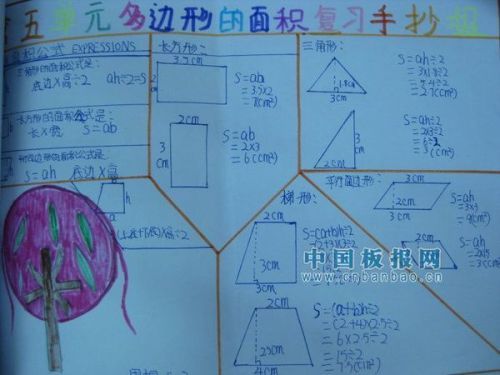 五单元多边形的面积复习手抄报
积公式 EXPRESSIONS
三角形的面积公式是:
底边X高÷2 ah÷2=S
长方形的面积公式是:
长X宽 S=ab
形四边形的面积公式是:
S=ah 底边X高
a
h
X高÷2
长方形:
3.5cm
2cm
S=ab
=3.5x2
=7(cm²)
2cm
3cm
S=ab
=2x3
=6(cm²)
三角形:
1.8cm
3cm
S=ah÷2
=3x1.8÷2
=5.4÷2
=2.7(cm²)
3cm
2cm
S=ah÷2
=2x3÷2
=6÷2
=3(cm²)
平行四边形:
3cm
3cm
S=ah
=3x3
=9(cm²)
2cm
S=ah
梯形:
2cm
3cm
3cm
S=(a+b)h÷2
=(2+3)x3÷2
2cm
2.5cm
4cm
S=(a+b)h÷2
=(2+4)x2.5÷2
=6x2.5÷2
=15÷2
=7.5(cm²)
中国板报网
www.cnbanbao.cn